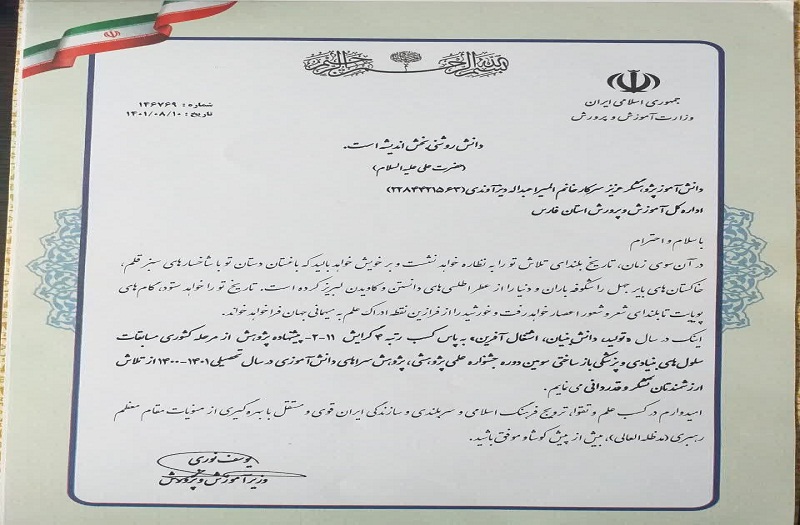 بسم الله الرحمن الرحیم
جمهوری اسلامی ایران
وزارت آموزش و پرورش
شماره : ۱۴۶۷۶۹
تاریخ : ۱۴۰۱/۰۸/۱۰
دانش روشنی بخش اندیشه است.
(حضرت علی علیه السلام)
دانش آموز پژوهشگر عزیز سرکار خانم المیرا عبداله دیزآوندی (۲۲۸۴۴۲۱۵۶۳)
اداره کل آموزش و پرورش استان فارس
با سلام و احترام
در آن سوی زمان، تاریخ بلندای تلاش تو را به نظاره خواهد نشست و بر خویش خواهد بالید که باغستان دستان تو با شاخسارهای سبز قلم،
خاکستان های بایر جهل را شکوفه باران و دنیا را از عطر اطلسی های دانستن و کاویدن لبریز کرده است. تاریخ تو را خواهد ستود، گام های
پویایت تا بلندای شعر و شعور اعصار خواهد رفت و خورشید را از فرازین نقطه ادراک علم به میهمانی جهان فرا خواهد خواند.
اینک در سال «تولید، دانش بنیان، اشتغال آفرین» به پاس کسب رتبه ۴ گرایش ۱۱-۲- پیشنهاده پژوهش از مرحله کشوری مسابقات
سلول های بنیادی و پزشکی بازساختی سومین دوره جشنواره علمی پژوهشی، پژوهش سراهای دانش آموزی در سال تحصیلی ۱۴۰۱-۱۴۰۰ از تلاش
ارزشمندتان تشکر و قدردانی می نمایم.
امیدوارم در کسب علم و تقوا، ترویج فرهنگ اسلامی و سربلندی و سازندگی ایران قوی و مستقل با بهره گیری از منویات مقام معظم
رهبری (مدظله العالی)، بیش از پیش کوشا و موفق باشید.
یوسف نوری
وزیر آموزش و پرورش